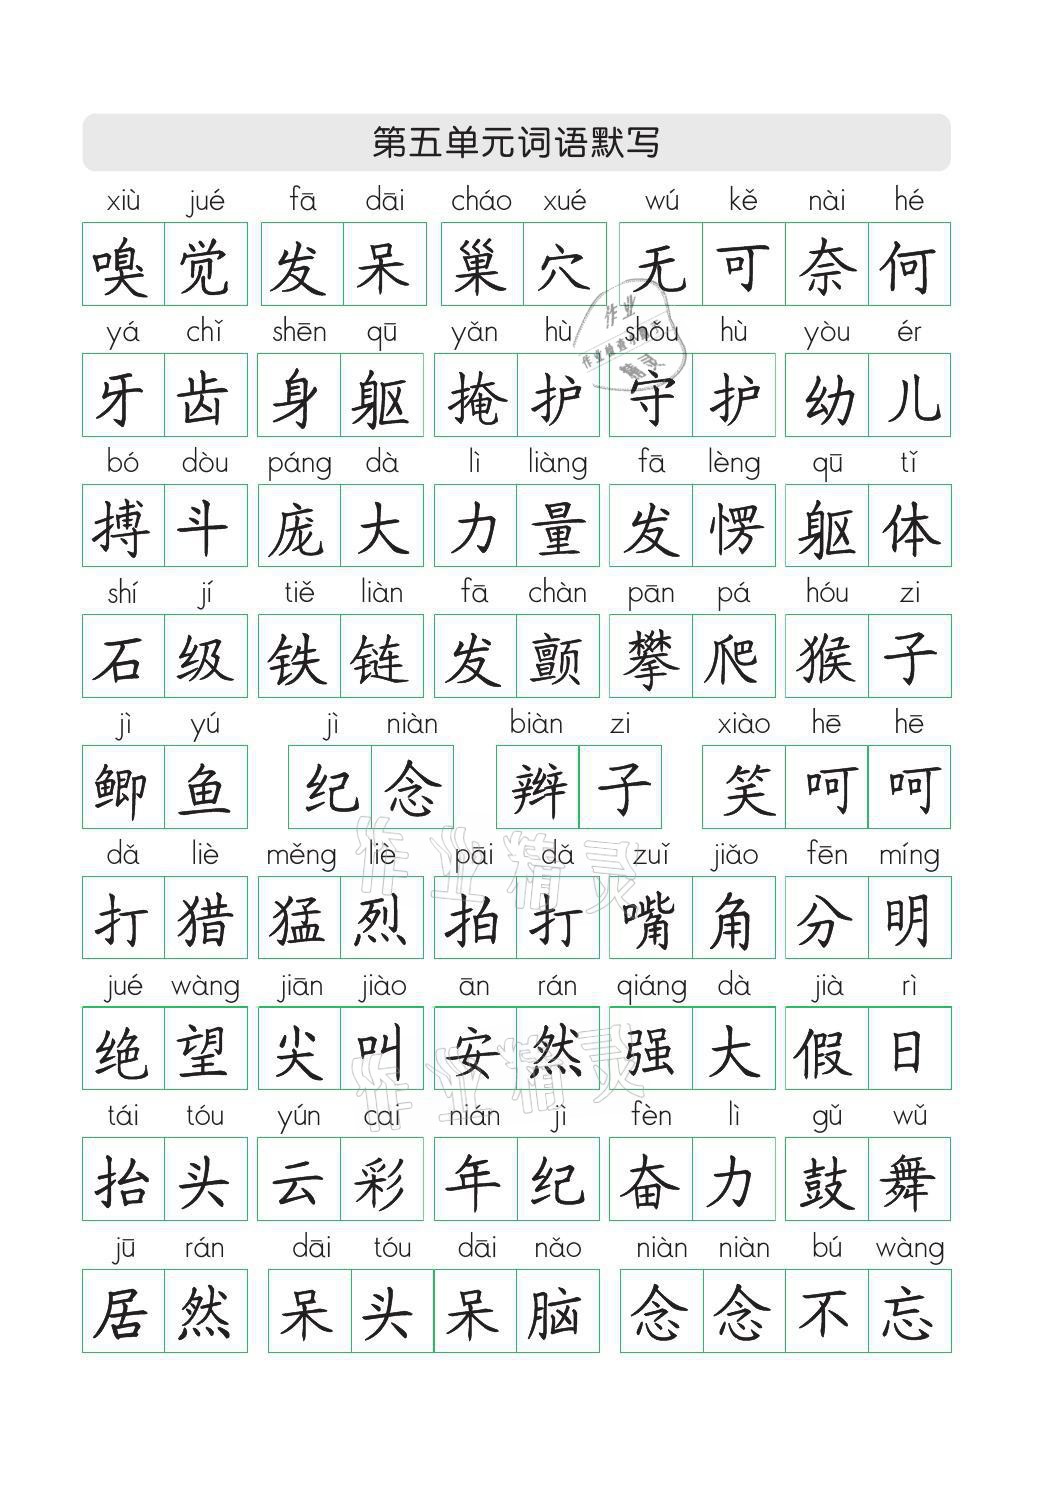 第五单元词语默写
xiù jué fā dāi cháo xué wú kě nài hé
嗅觉 发呆 巢穴 无可奈何
yá chǐ shēn qū yǎn hù shǒu hù yòu ér
牙齿 身躯 掩护 守护 幼儿
bó dòu páng dà lì liàng fā lèng qū tǐ
搏斗 庞大 力量 发愣 躯体
shí jí tiě liàn fā chàn pān pá hóu zi
石级 铁链 发颤 攀爬 猴子
jì yú jì niàn biàn zi xiào hē hē
鲫鱼 纪念 辫子 笑呵呵
dǎ liè měng liè pāi dǎ zuǐ jiǎo fēn míng
打猎 猛烈 拍打 嘴角 分明
jué wàng jiān jiào ān rán qiáng dà jià rì
绝望 尖叫 安然 强大 假日
tái tóu yún cai nián jì fèn lì gǔ wǔ
抬头 云彩 年纪 奋力 鼓舞
jū rán dāi tóu dāi nǎo niàn niàn bú wàng
居然 呆头呆脑 念念不忘
作业
作业检查小助手
精灵
作业精灵
作业精灵